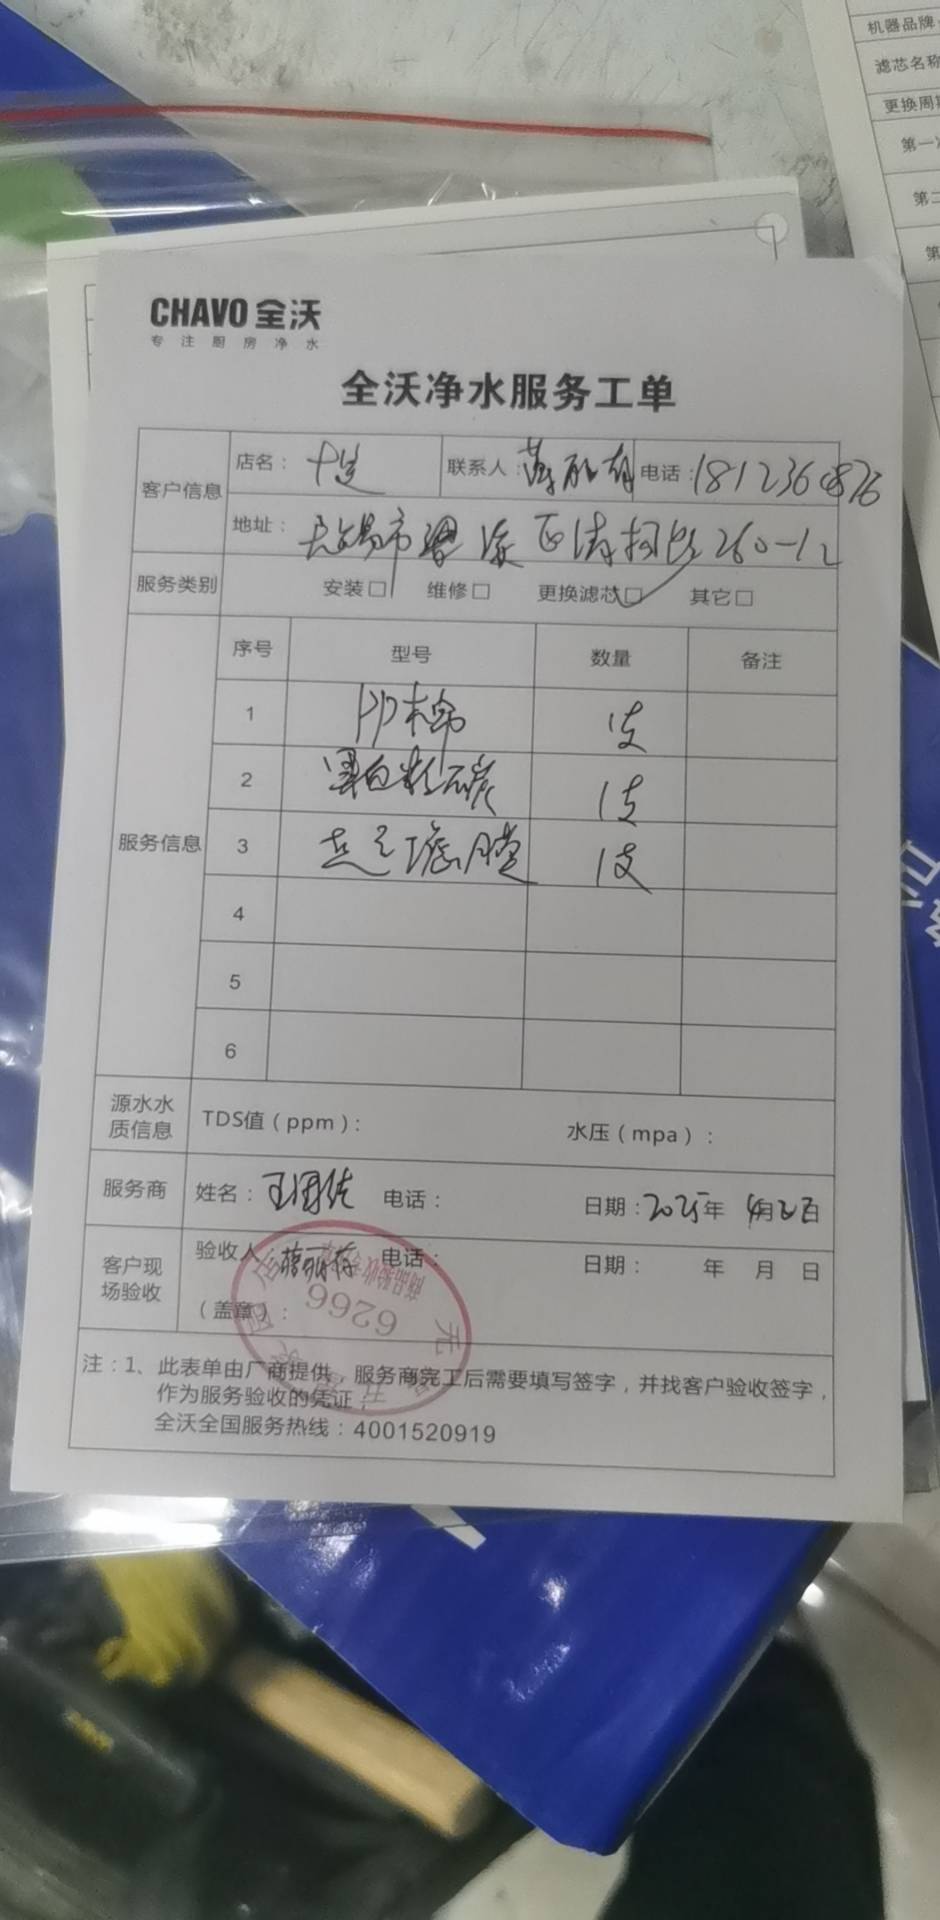 机器品牌
滤芯名称
更换周期
第一次
第二
第
CHAVO 全沃
专注厨房净水
全沃净水服务工单
客户信息 店名： 联系人： 电话：
地址： 无锡市梁溪区清扬路260-12
服务类别 安装□ 维修□ 更换滤芯□ 其它□
服务信息 序号 型号 数量 备注
1 PP棉 1支
2 1支
3 1支
4
5
6
源水水质信息 TDS值（ppm）： 水压（mpa）：
服务商 姓名： 电话： 日期：2025年 4月 日
客户现场验收 验收人： 电话： 日期： 年 月 日
（盖章）：
6266
商品验收
注：1、此表单由厂商提供，服务商完工后需要填写签字，并找客户验收签字，
作为服务验收的凭证；
全沃全国服务热线：4001520919